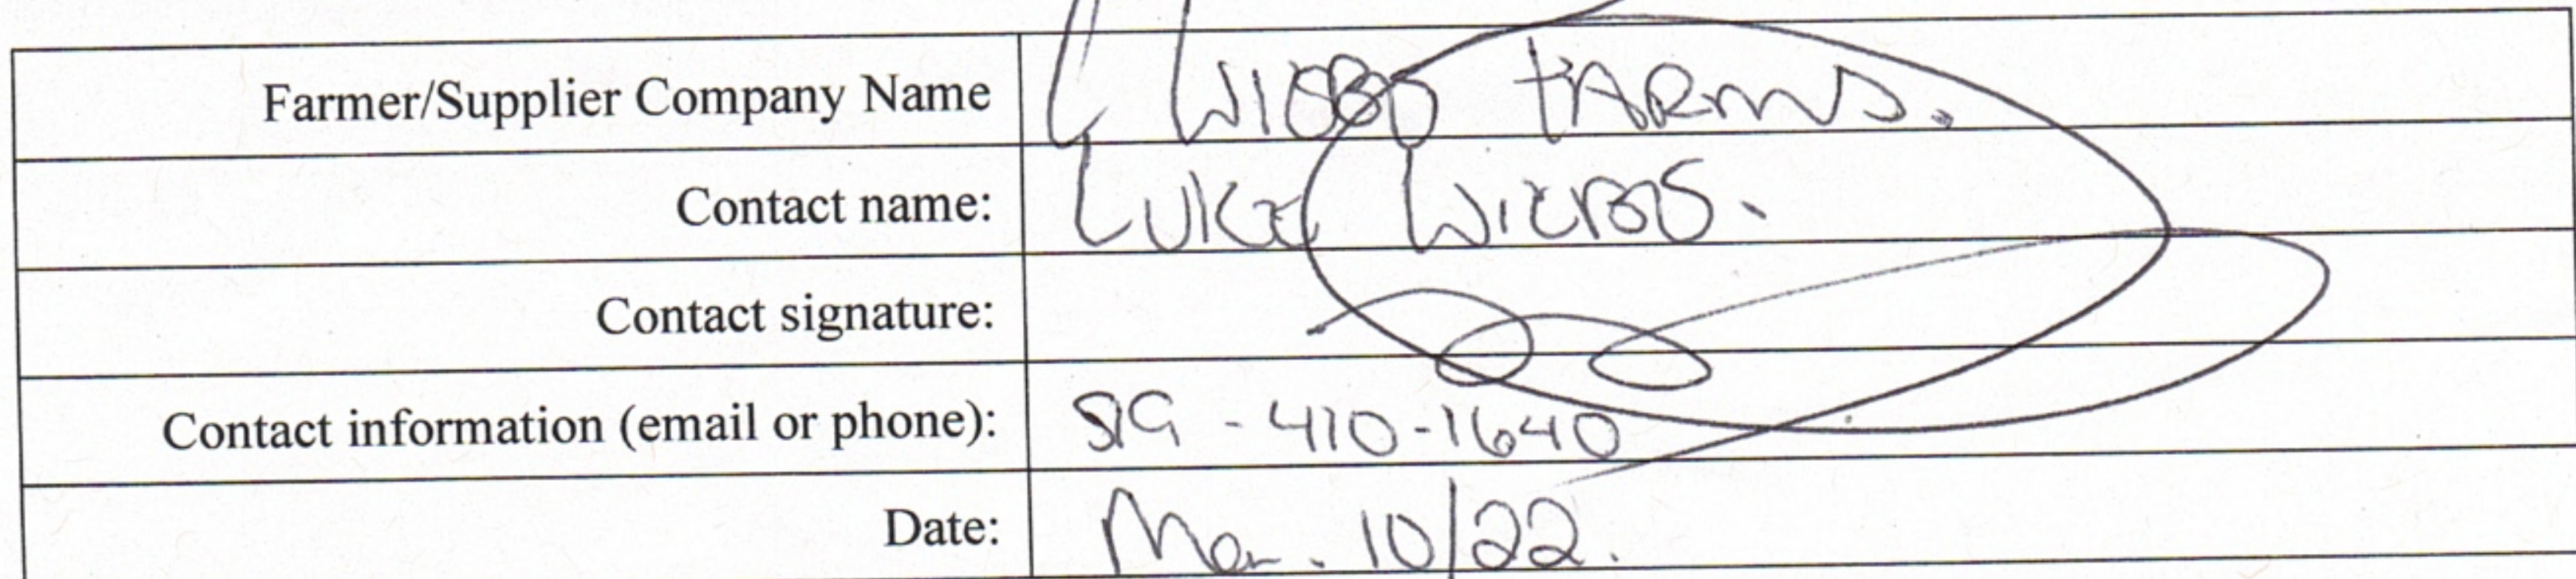 Farmer/Supplier Company Name FARMS.
Contact name: Luke
Contact signature:
Contact information (email or phone): 519-410-1640
Date: Mar. 10/22.